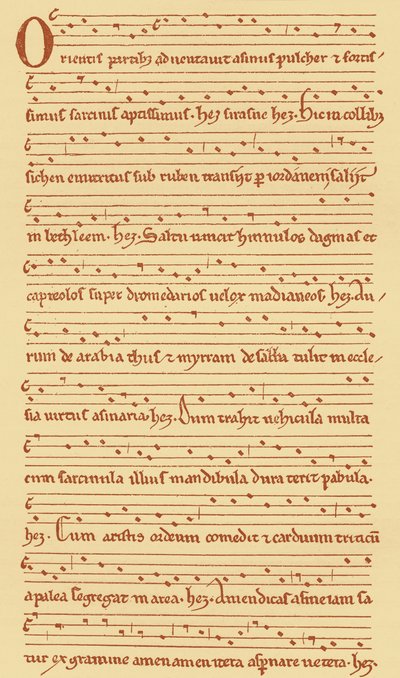 Orientis partibꝫ adventavit asinus pulcher ⁊ fortis-
simus sarcinis aptissimus. hez sir asne hez. Hic in collibꝫ
sichen enutritus sub ruben transiit ꝑ iordanem saliit
in bethleem. hez. Saltu vincit hinnulos dagmas et
capreolos super dromedarios velox madianeos hez Au-
rum de arabia thus ⁊ myrram de sabba tulit in eccle-
sia virtus asinaria. hez. Dum trahit vehicula multa
cum sarcinula illius mandibula dura terit pabula.
hez. Cum aristis ordeum comedit ⁊ carduum triticū
a palea segregat in area. hez. Amen dicas asine iam sa
tur ex gramine amen amen itera aspnare vetera. hez.